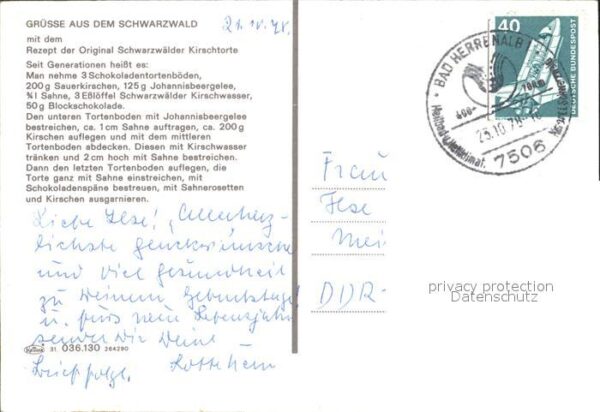 GRÜSSE AUS DEM SCHWARZWALD
mit dem
Rezept der Original Schwarzwälder Kirschtorte
Seit Generationen heißt es:
Man nehme 3 Schokoladentortenböden,
200 g Sauerkirschen, 125 g Johannisbeergelee,
¾ l Sahne, 3 Eßlöffel Schwarzwälder Kirschwasser,
50 g Blockschokolade.
Den unteren Tortenboden mit Johannisbeergelee
bestreichen, ca. 1 cm Sahne auftragen, ca. 200 g
Kirschen auflegen und mit dem mittleren
Tortenboden abdecken. Diesen mit Kirschwasser
tränken und 2 cm hoch mit Sahne bestreichen.
Dann den letzten Tortenboden auflegen, die
Torte ganz mit Sahne einstreichen, mit
Schokoladenspäne bestreuen, mit Sahnerosetten
und Kirschen ausgarnieren.
Liebe Ilse! Allerherz-
lichste
und viel Gesundheit
zu Deinem Geburtstage!
u. fürs neue Lebensjahr
senden Dir Deine
31 036.130 264290
40
DEUTSCHE BUNDESPOST
BAD HERRENALB 1
25.10.78
7506
Frau
Ilse
Mei
DDR-
privacy protection
Datenschutz